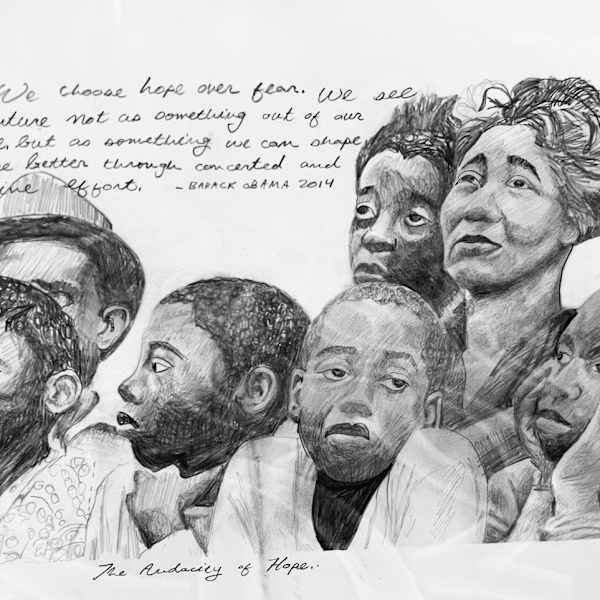 We choose hope over fear. We see
uture not as something out of our
l, but as something we can shape
e better through concerted and
ine effort. - BARACK OBAMA 2014
The Audacity of Hope..